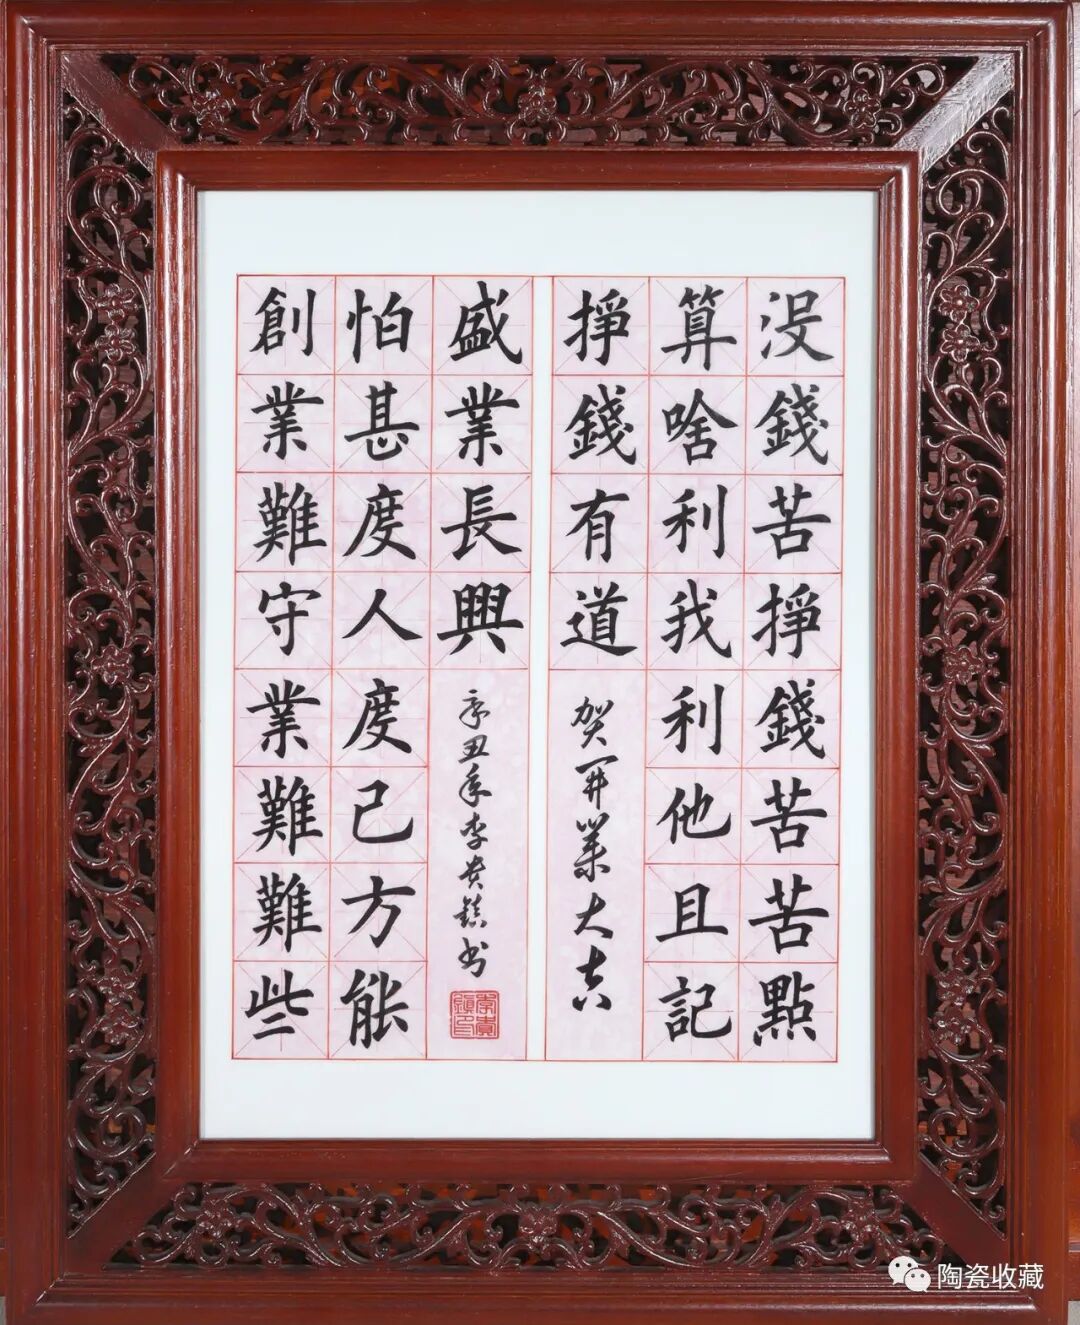 没錢苦掙錢苦苦點
算啥利我利他且記
掙錢有道
贺开業大吉
創業難守業難難些
怕甚度人度己方能
盛業長興
辛丑年李贵鎮书
李貴鎮印
陶瓷收藏